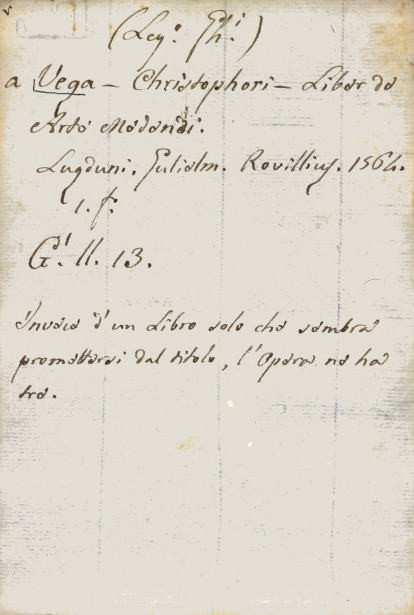 (Leg.º Ph.i)
a Vega – Christophori – Liber de
Arte Medendi.
Lugduni. Gulielm. Rovillius. 1564.
1. f.
G. II. 13.
Invece d'un Libro solo che sembra
promettersi dal titolo, l'Opera ne ha
tre.